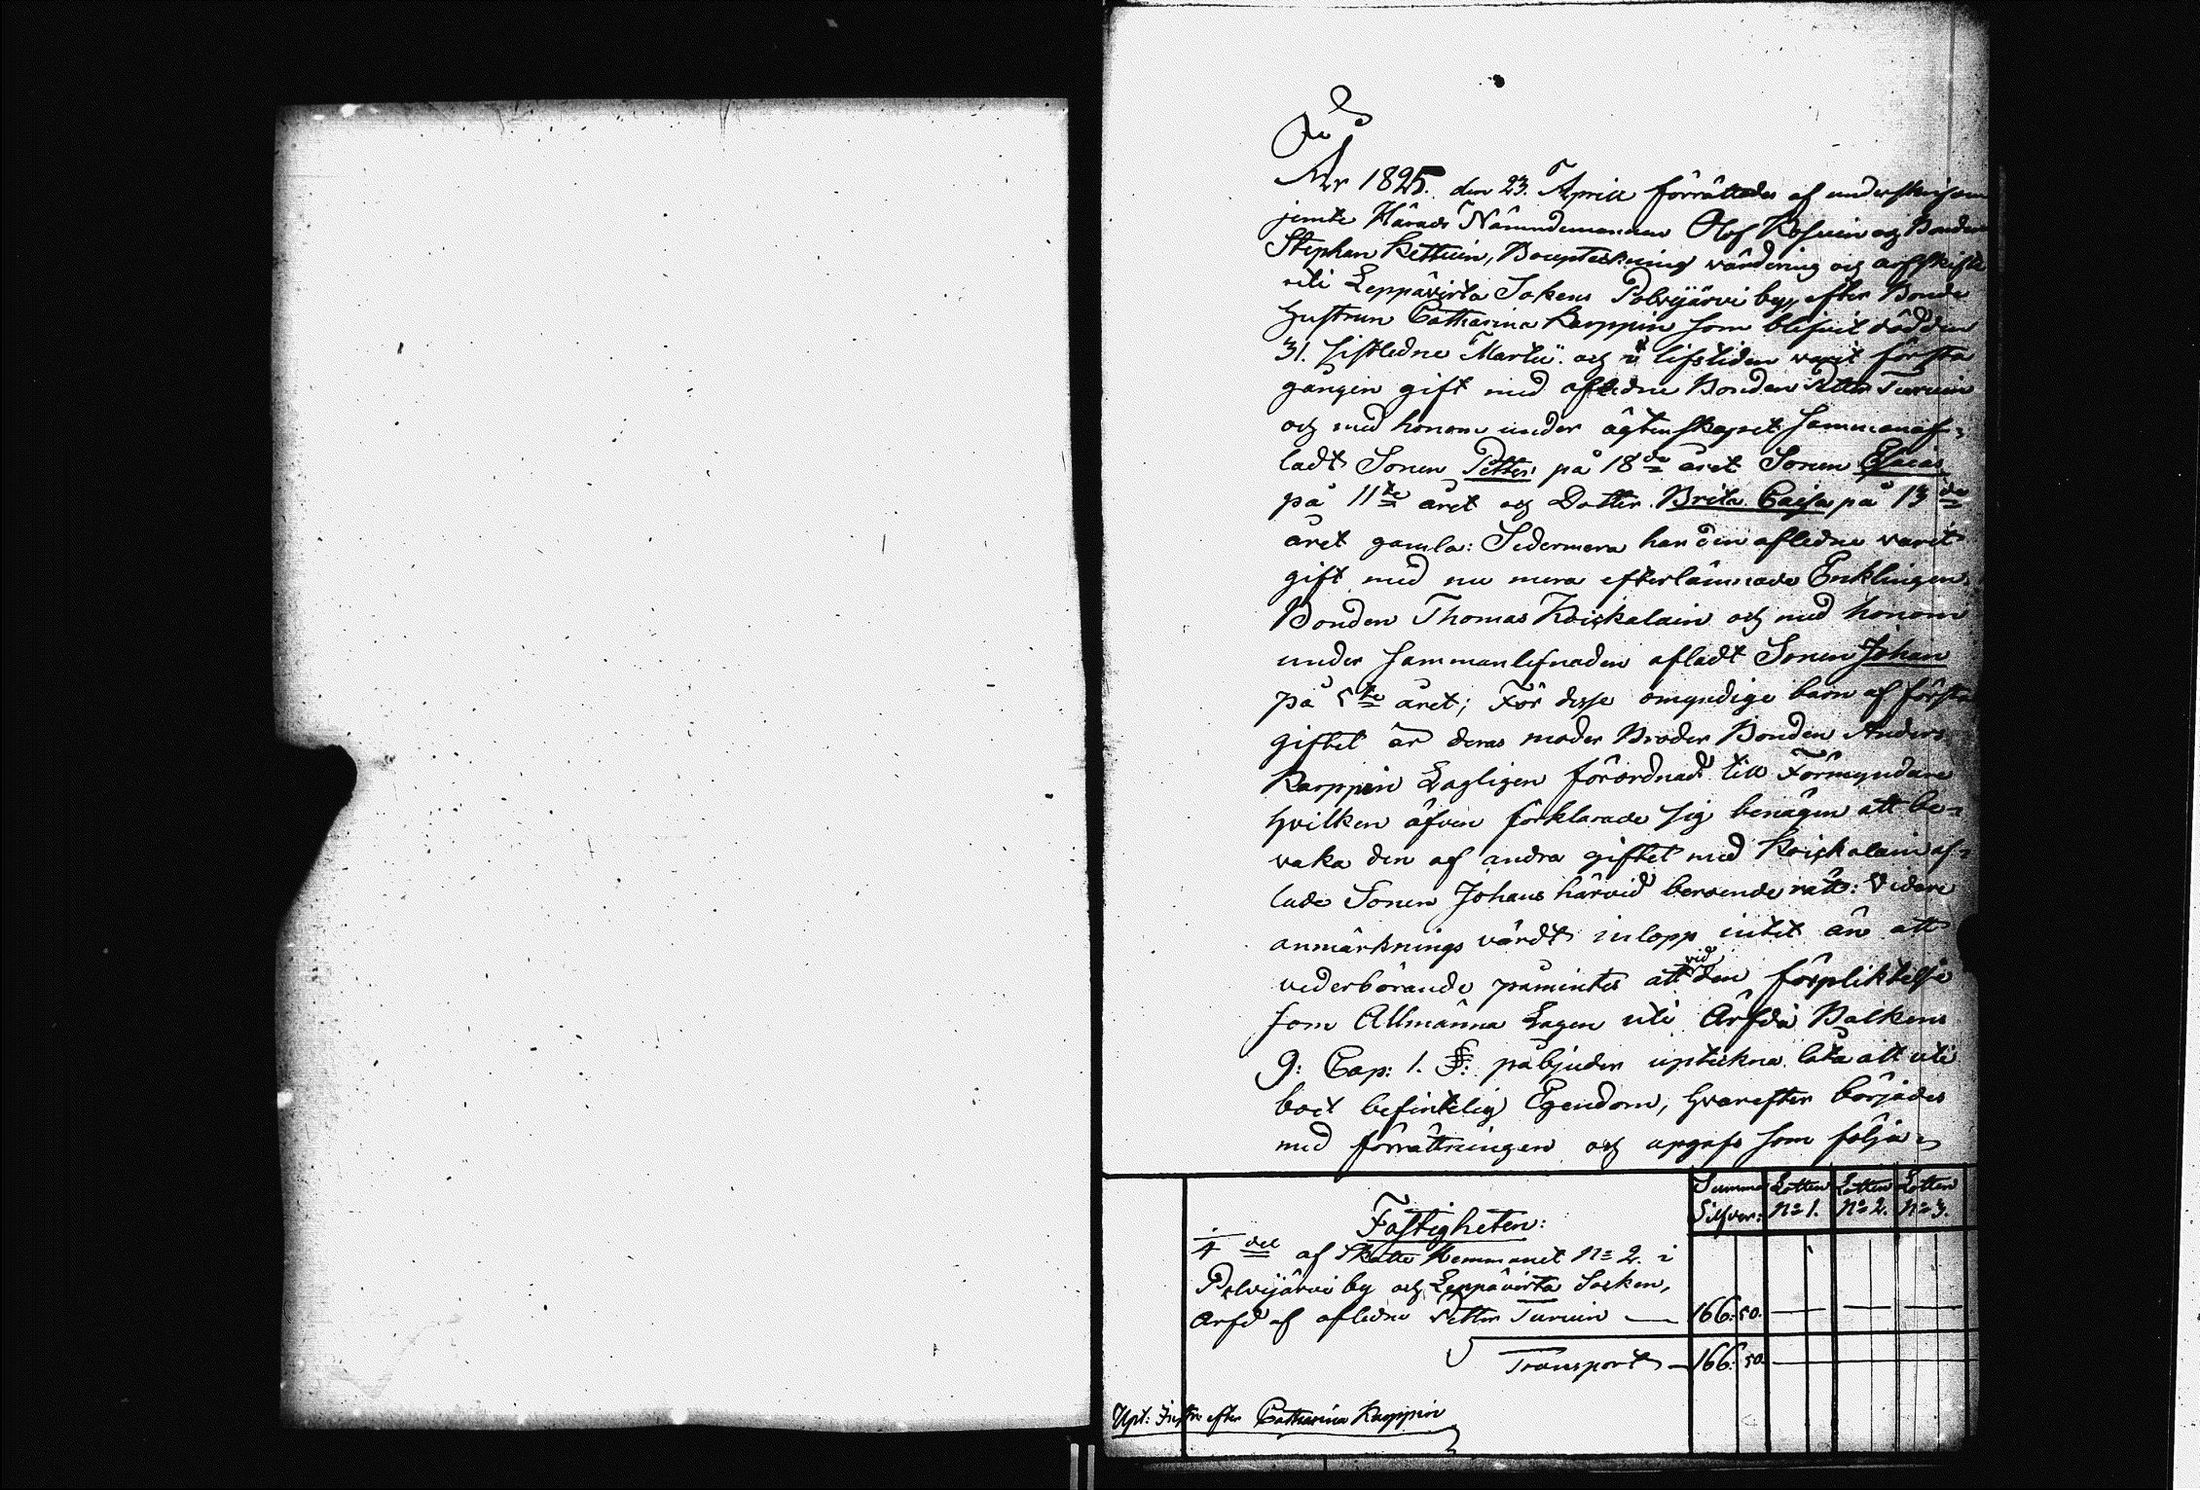 År 1825. den 23. Aprill förrättades af underskrifven
jemte Härads Nämndemannen Olof Kosuin og Bonden
Stephan Kettuin, Bouptekning värdering og arfskifte
uti Leppävirta Sokens Polvijärvi by, efter Bonde
hustrun Catharina Karppin som blifvit död den
31. sistledne Martii. og i lifstiden varit första
gången gift med afledne Bonden Petter Turuin
og med honom under ägtenskapet sammanaf-
ladt Sonen Petter på 18de året Sonen Esaias
på 11te året og Dotter Brita Caisa på 13de
året gamla: Sedermera har den afledne varit
gift med nu mera efterlämnade Enklingen
Bonden Thomas Koiskalain og med honom
under sammanlefnaden afladt Sonen Johan
på 5te året; För desse omyndige barn af första
giftet är deras moder Broder Bonden Anders
Karppin Lagligen förordnad till Förmyndare
hvilken äfven förklarade sig benägen att be-
vaka den af andra giftet med Koiskalain af-
lade Sonen Johans härvid beroende rätt: Vidare
anmärknings värdt inlopp intet än att
vederbörande påmintes att vid den förpliktelse
som Allmänna Lagen uti Ärfda Balkens
9: Cap: 1. §: påbjuder uptekna låta allt uti
boet befintelig Egendom, hvarefter börjades
med förrättningen og upgafs som följer
Summa Silfver: Lotten No 1. Lotten No 2. Lotten No 3.
Fastigheten:
1/4 del af Skatte Hemmanet No 2. i
Polvijärvi by og Leppävirta Socken,
Ärfd af afledne Petter Turuin — 166: 50.
Transport — 166: 50
Upt: Instr: efter Catharina Karppin